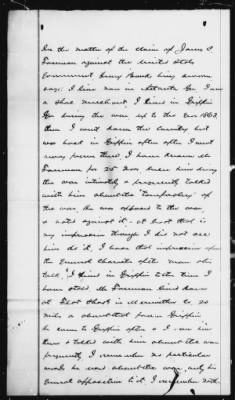 In the matter of the claim of James C.
Freeman against the United States
Government Henry Banks being sworn
says; I live now in Atlanta Ga. I am
a Shoe merchant. I lived in Griffin
Ga during the war up to the Dec 1863,
then I went down the Country but
was back in Griffin often after I went
away from there. I have known Mr
Freeman for 25 Years before him during
the war intimately & frequently talked
with him about the
the war, he was opposed to the
& voted against it - at least that is
my impression though I did not see
him do it, I base that impression upon
the general character of the man &
talk. I lived in Griffin to the time I
have stated, Mr Freeman lived down
at Flat Shoals in Meriwether Co. 20
miles or about that from Griffin
he came to Griffin often & I saw him
there & talked with him about the war
frequently I remember no particular
words he used about the war, only his
general opposition to it. I remember